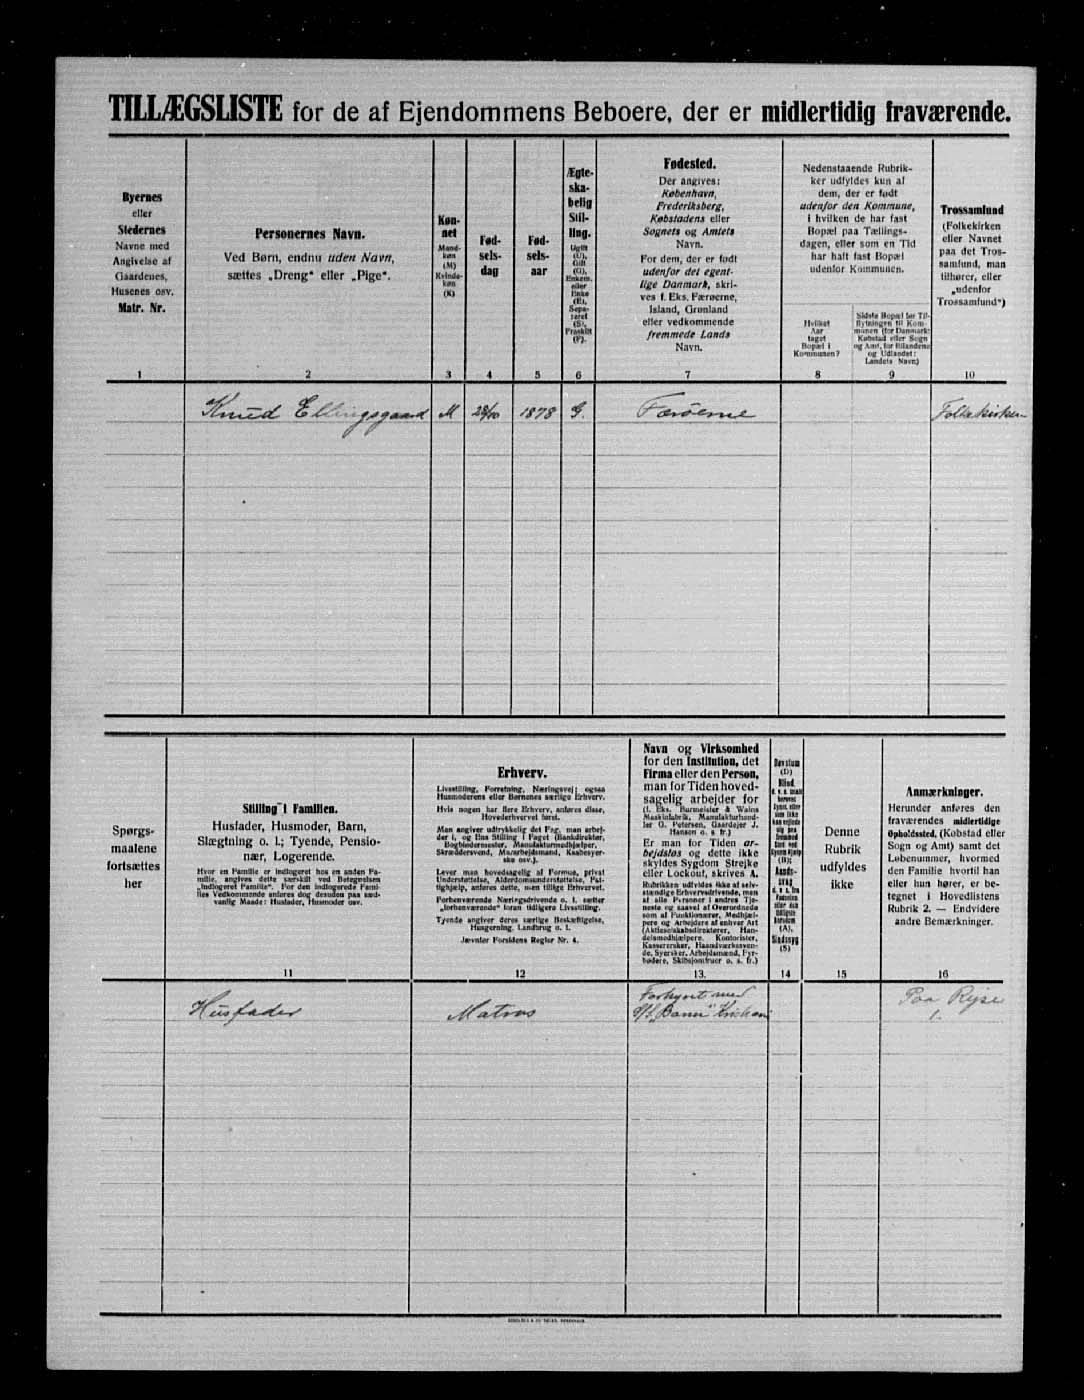 TILLÆGSLISTE for de af Ejendommens Beboere, der er midlertidig fraværende.
Byernes
eller
Stedernes
Navne med
Angivelse af
Gaardenes,
Husenes osv.
Matr. Nr.
Personernes Navn.
Ved Børn, endnu uden Navn,
sættes „Dreng“ eller „Pige“.
Køn-
net
Mand-
køn
(M)
Kvinde-
køn
(K)
Fød-
sels-
dag
Fød-
sels-
aar
Ægte-
ska-
belig
Stil-
ling.
Ugift
(U),
Gift
(G),
Enkem.
eller
Enke
(E),
Sepa-
reret
(S),
Fraskilt
(F).
Fødested.
Der angives:
København,
Frederiksberg,
Købstadens eller
Sognets og Amtets
Navn.
For dem, der er født
udenfor det egent-
lige Danmark, skri-
ves f. Eks. Færøerne,
Island, Grønland
eller vedkommende
fremmede Lands
Navn.
Nedenstaaende Rubrik-
ker udfyldes kun af
dem, der er født
udenfor den Kommune,
i hvilken de har fast
Bopæl paa Tællings-
dagen, eller som en Tid
har haft fast Bopæl
udenfor Kommunen.
Hvilket
Aar
taget
Bopæl i
Kommunen?
Sidste Bopæl før Til-
flytningen til Kom-
munen (for Danmark:
Købstad eller Sogn
og Amt, for Bilandene
og Udlandet:
Landets Navn)
Trossamfund
(Folkekirken
eller Navnet
paa det Tros-
samfund, man
tilhører, eller
„udenfor
Trossamfund“)
1 2 3 4 5 6 7 8 9 10
Knud Ellingsgaard M 28/10 1878 G. Færöerne Folkekirken
Spørgs-
maalene
fortsættes
her
Stilling i Familien.
Husfader, Husmoder, Barn,
Slægtning o. l.; Tyende, Pensio-
nær, Logerende.
Hvor en Familie er indlogeret hos en anden Fa-
milie, angives dette særskilt ved Betegnelsen
„Indlogeret Familie“. For den indlogerede Fami-
lies Vedkommende anføres dog desuden paa sæd-
vanlig Maade: Husfader, Husmoder osv.
Erhverv.
Livsstilling, Forretning, Næringsvej; ogsaa
Husmoderens eller Børnenes særlige Erhverv.
Hvis nogen har flere Erhverv, anføres disse,
Hovederhvervet først.
Man angiver udtrykkelig det Fag, man arbej-
der i, og Ens Stilling i Faget (Bankdirektør,
Bogbindermester, Manufakturmedhjælper,
Skræddersvend, Murarbejdsmand, Kaabesyer-
ske osv.).
Lever man hovedsagelig af Formue, privat
Understøttelse, Alderdomsunderstøttelse, Fat-
tighjælp, anføres dette, men tillige Erhvervet.
Forhenværende Næringsdrivende o. l. sætter
„forhenværende“ foran tidligere Livsstilling.
Tyende angiver deres særlige Beskæftigelse,
Husgerning, Landbrug o. l.
Jævnfør Forsidens Regler Nr. 4.
Navn og Virksomhed
for den Institution, det
Firma eller den Person,
man for Tiden hoved-
sagelig arbejder for
(f. Eks. Burmeister & Wains
Maskinfabrik, Manufakturhand-
ler G. Petersen, Gaardejer J.
Hansen o. s. fr.)
Er man for Tiden ar-
bejdsløs og dette ikke
skyldes Sygdom Strejke
eller Lockout, skrives A.
Rubrikken udfyldes ikke af selv-
stændige Erhvervsdrivende, men
af alle Personer i andres Tje-
neste og saavel af Overordnede
som af Funktionærer, Medhjæl-
pere og Arbejdere af enhver Art
(Aktieselskabsdirektører, Han-
delsmedhjælpere, Kontorister,
Kassererskær, Haandværkssven-
de, Syersker, Arbejdsmænd, Fyr-
bødere, Skibsjomfruer o. s. fr.)
Døvstum
(D)
Blind,
Aands-
svag
(A),
Sindssyg
(S)
Denne
Rubrik
udfyldes
ikke
Anmærkninger.
Herunder anføres den
fraværendes midlertidige
Opholdssted, (Købstad eller
Sogn og Amt) samt det
Løbenummer, hvormed
den Familie hvortil han
eller hun hører, er be-
tegnet i Hovedlistens
Rubrik 2. — Endvidere
andre Bemærkninger.
11 12 13. 14 15 16
Husfader Matros Forhyret med Paa Rejse
S/S „Baner“ 1.